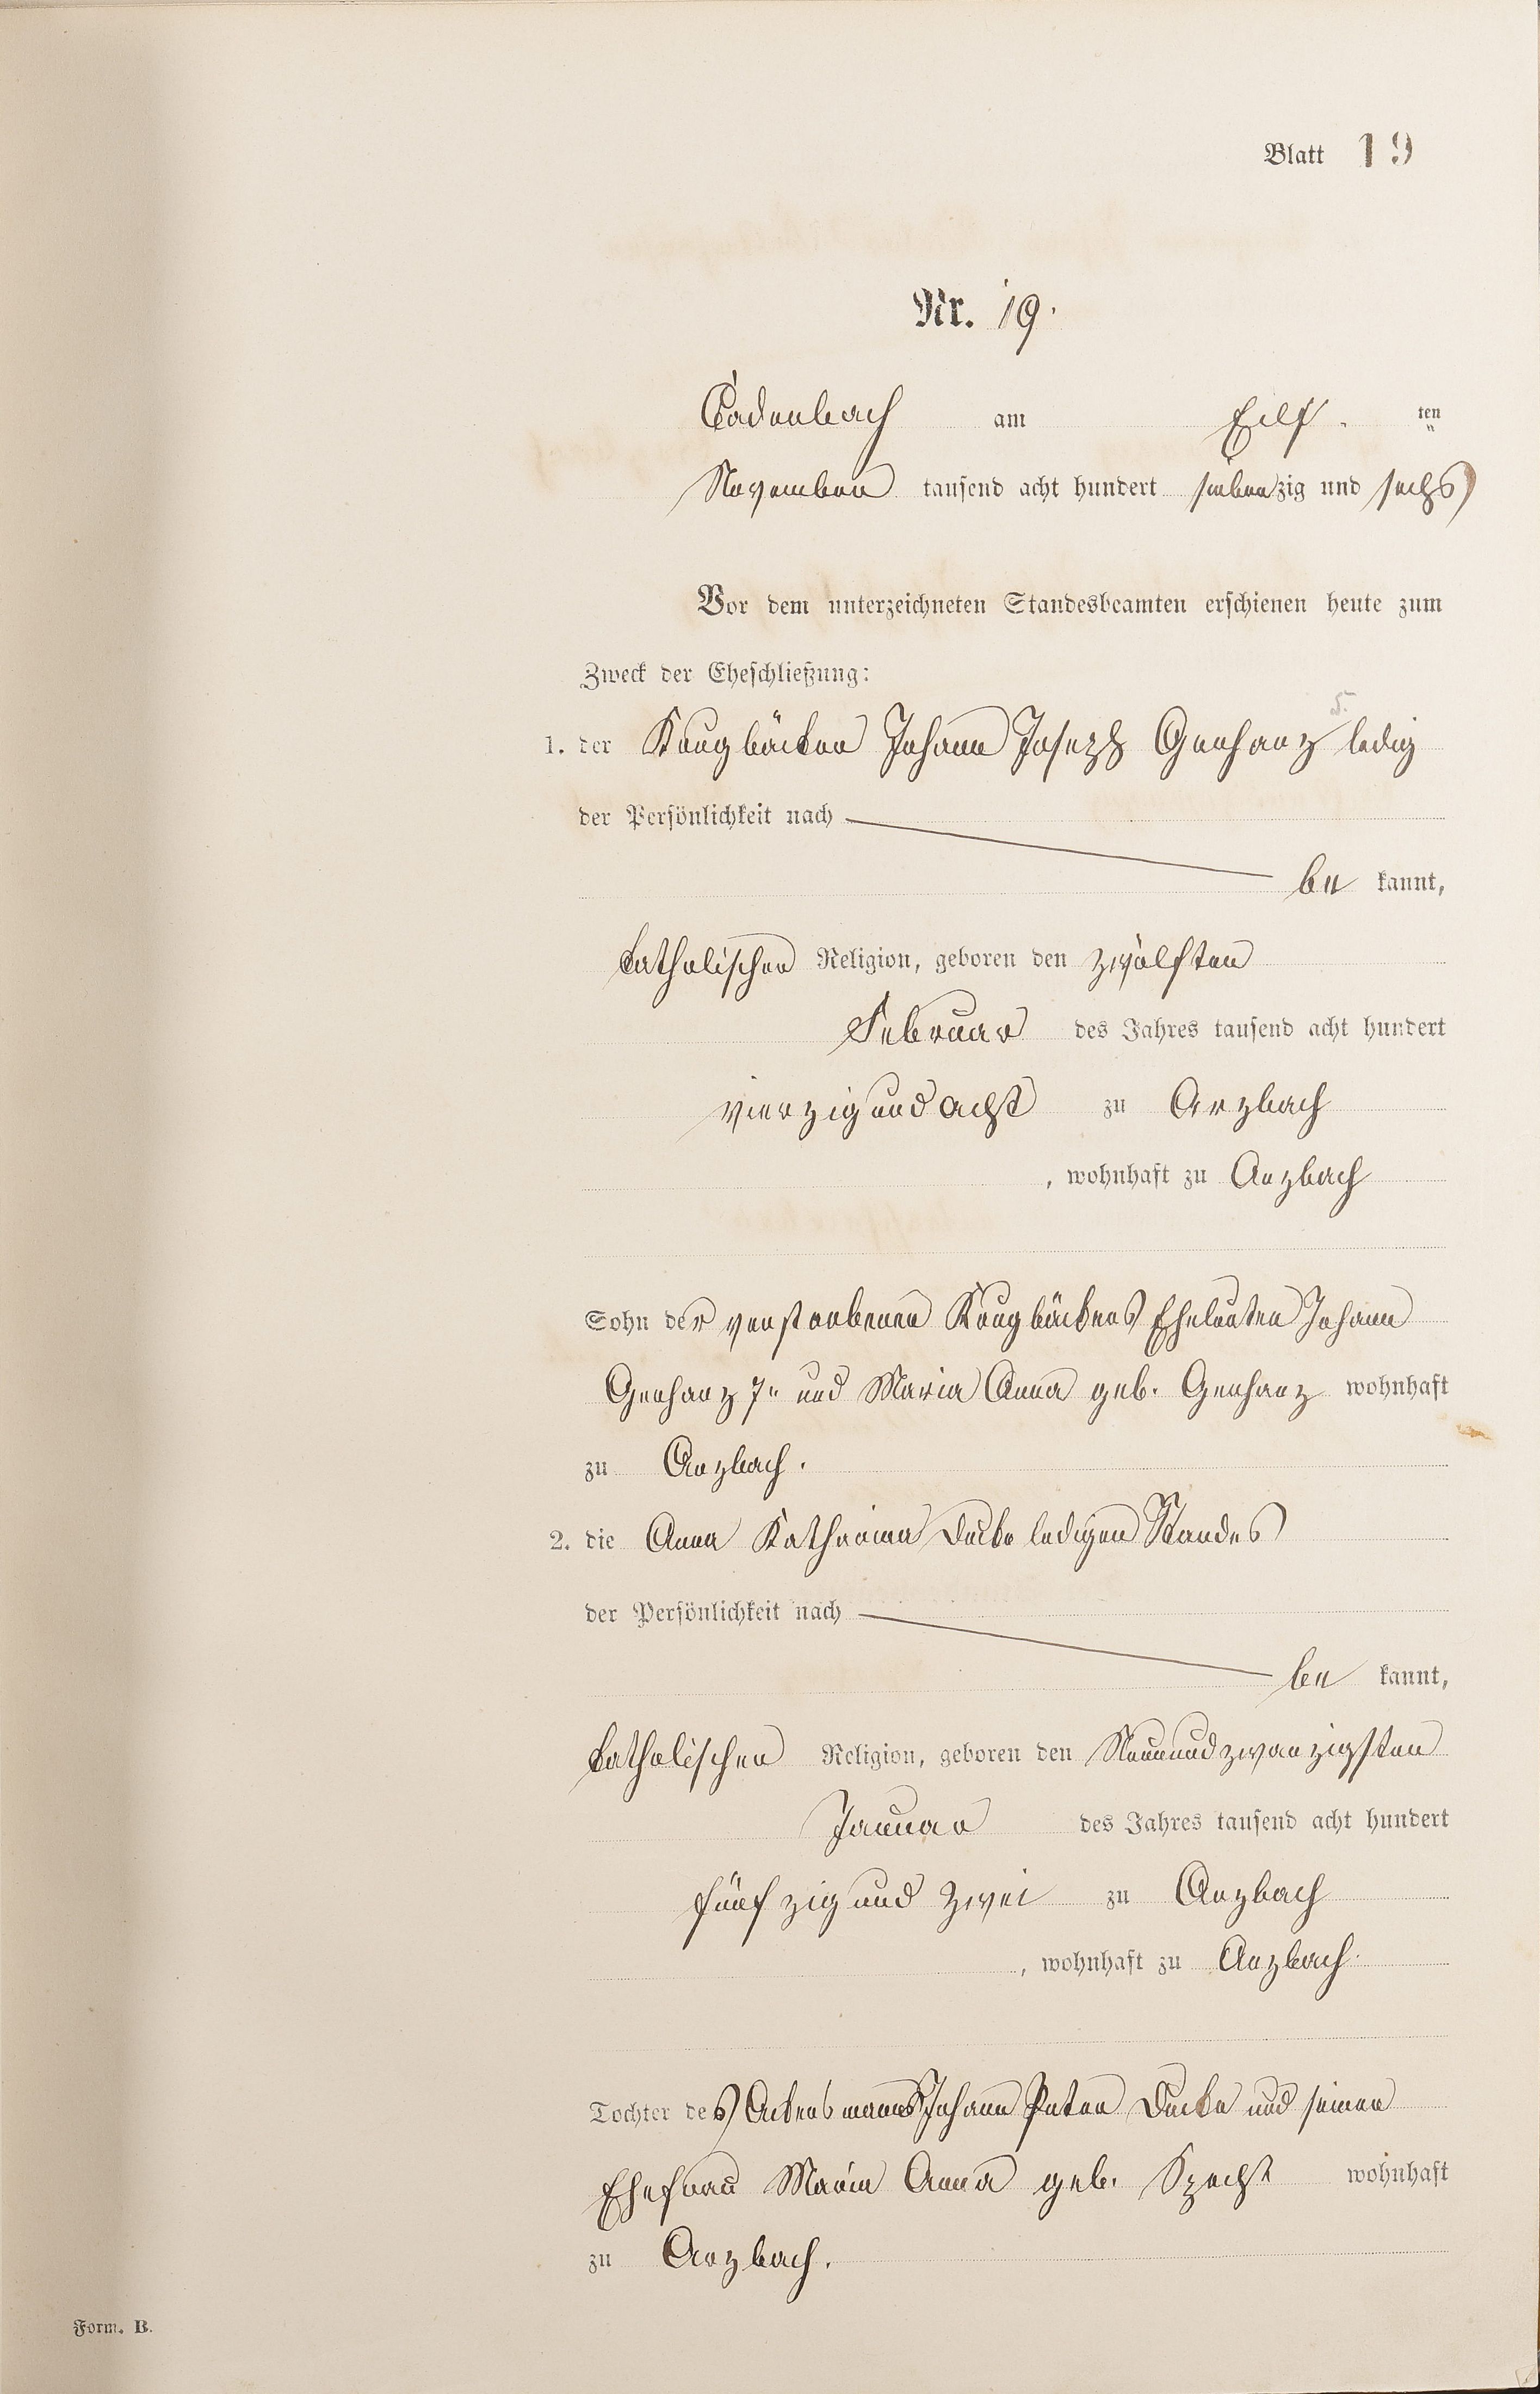 Blatt 19
Nr. 19.
Cadenbach am Eilf ten
November tausend acht hundert siebenzig und sechs
Vor dem unterzeichneten Standesbeamten erschienen heute zum
Zweck der Eheschließung:
1. der Krugbäcker Johann Joseph Gerharz ledig
der Persönlichkeit nach
be kannt,
katholischer Religion, geboren den zwölften
Februar des Jahres tausend acht hundert
vierzig und acht zu Arzbach
, wohnhaft zu Arzbach
Sohn der verstorbenen Krugbäckers Eheleuten Johann
Gerharz 7r und Maria Anna geb. Gerharz wohnhaft
zu Arzbach.
2. die Anna Katharina Decker ledigen Standes
der Persönlichkeit nach
be kannt,
katholischer Religion, geboren den Neunundzwanzigsten
Januar des Jahres tausend acht hundert
fünfzig und zwei zu Arzbach
, wohnhaft zu Arzbach.
Tochter des Ackersmanns Johann Peter und seiner
Ehefrau Maria Anna geb. Specht wohnhaft
zu Arzbach.
Form. B.